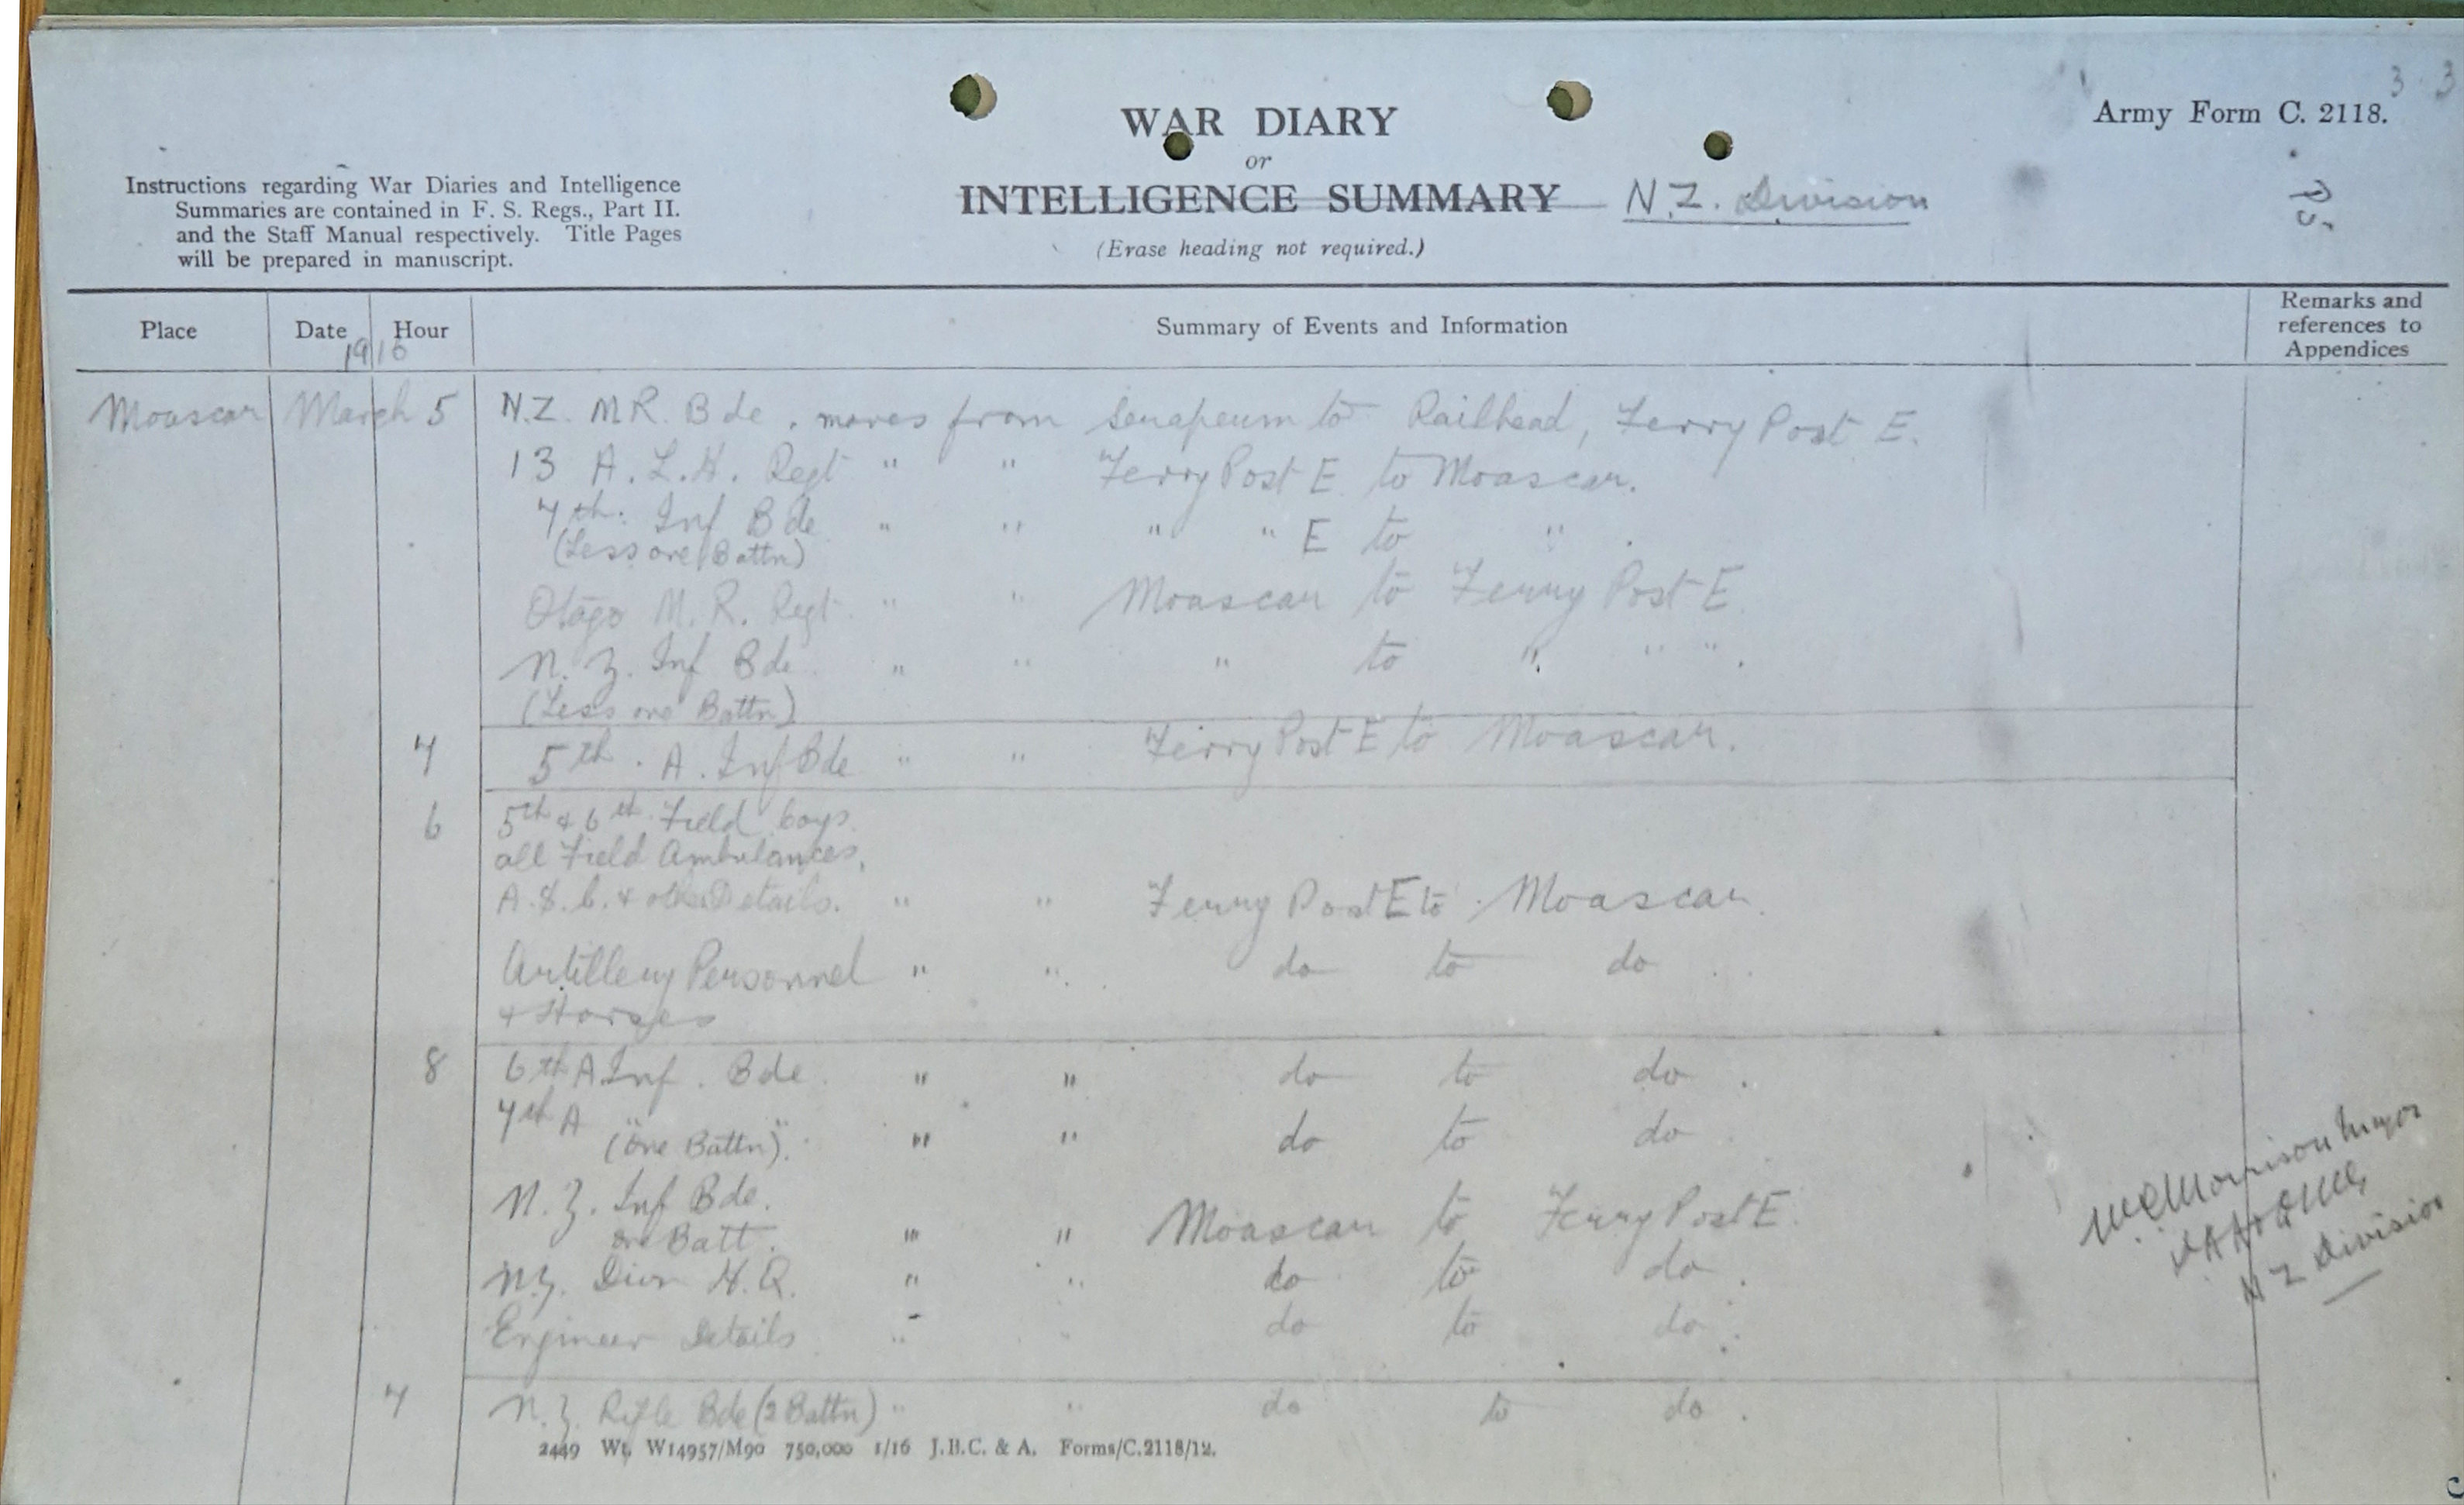 3 3
Army Form C. 2118.
WAR DIARY
or
INTELLIGENCE SUMMARY N.Z. Division
(Erase heading not required.)
Instructions regarding War Diaries and Intelligence
Summaries are contained in F. S. Regs., Part II.
and the Staff Manual respectively. Title Pages
will be prepared in manuscript.
Place Date Hour Summary of Events and Information Remarks and references to Appendices
1916
Moascar March 5 N.Z. M.R. Bde. moves from Serapeum to Railhead, Ferry Post E.
13 A.L.H. Regt " " Ferry Post E to Moascar.
4th. Inf Bde " " " " E to " .
(Less one Battn)
Otago M.R. Regt " " Moascar to Ferry Post E
N.Z. Inf Bde " " " to " " " .
(Less one Battn)
7 5th. A. Inf Bde " " Ferry Post E to Moascar.
6 5th & 6th Field Coys.
all Field Ambulances,
A.S.C. & other Details. " " Ferry Post E to Moascar.
Artillery Personnel " " do to do .
& Horses
8 6th A Inf. Bde. " " do to do .
4th A " "
(one Battn). " " do to do
N.Z. Inf Bde.
one Batt. " " Moascar to Ferry Post E.
N.Z. Divn H.Q. " " do to do .
Engineer Details " " do to do .
7 N.Z. Rifle Bde (2 Battn) " " do to do .
Morrison Major
NZ Division
2449 Wt. W14957/M90 750,000 1/16 J.B.C. & A. Forms/C.2118/12.